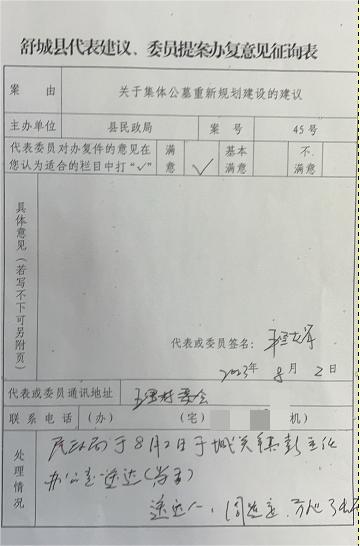 舒城县代表建议、委员提案办复意见征询表
案由 关于集体公墓重新规划建设的建议
主办单位 县民政局 案号 45号
代表委员对办复件的意见在您认为适合的栏目中打“√” 满意 √ 基本满意 不满意
具体意见（若写不下可另附页）
代表或委员签名：
2023年8月2日
代表或委员通讯地址 村委会
联系电话 （办） （宅） 机）
处理情况
民政局于8月2日于城关镇
办公室送达
送达人：